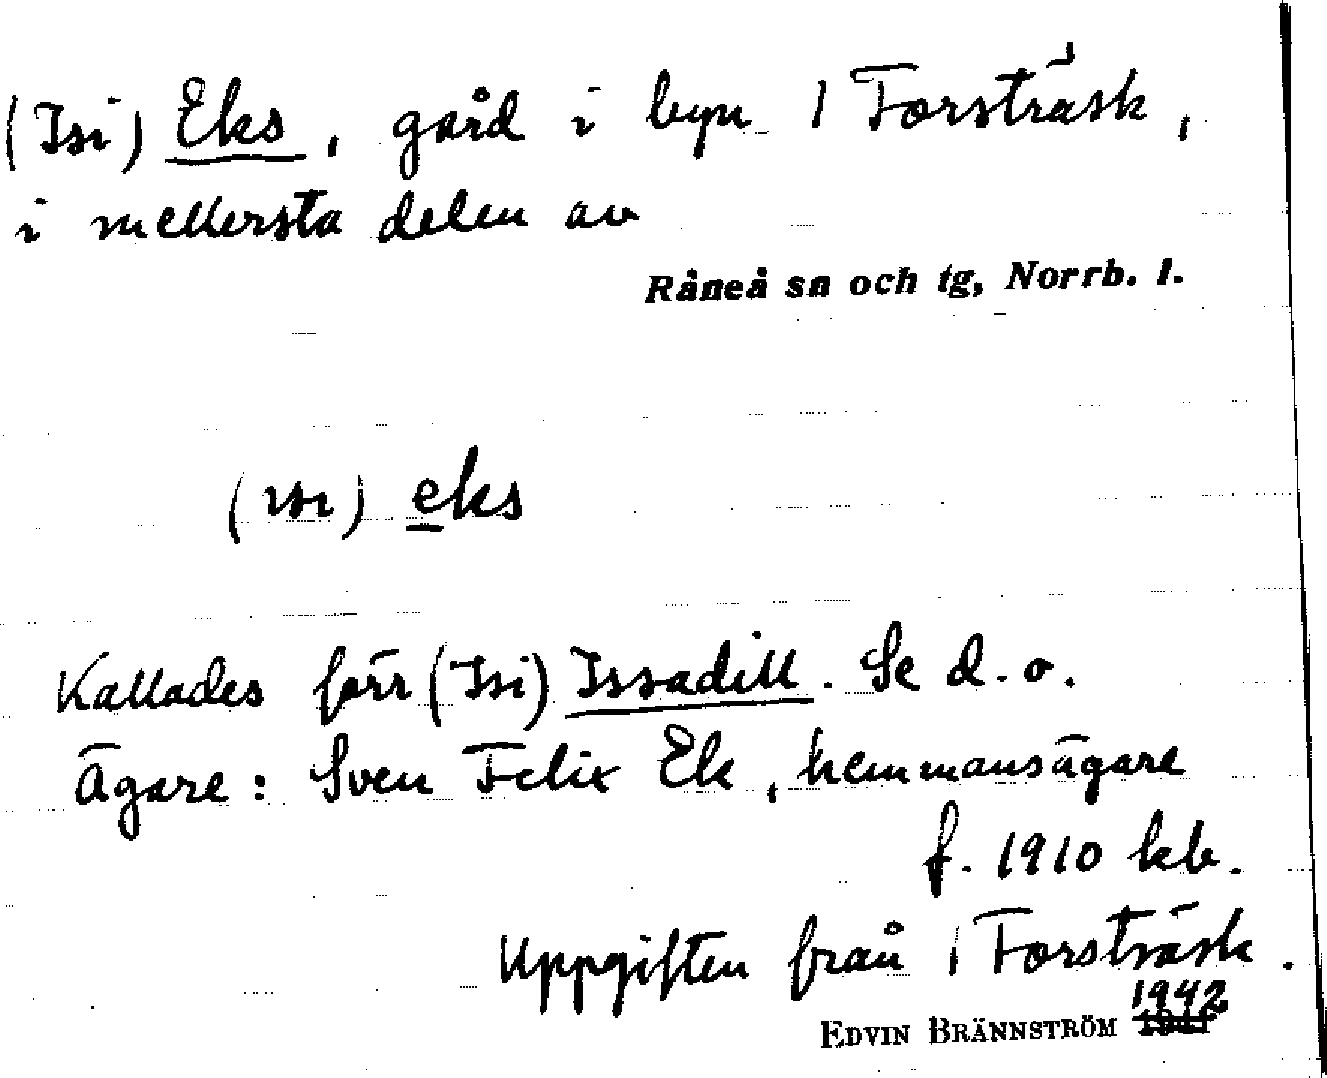 (Isi) Eks, gård i byn 1 Forsträsk,
i mellersta delen av
Råneå sn och tg, Norrb. l.
(isi) eks
Kallades förr (Isi) Issadill. Se d. o.
Ägare: Sven Felix Ek, hemmansägare
f. 1910 kb.
Uppgiften från 1 Forsträsk.
1942
EDVIN BRÄNNSTRÖM 1941